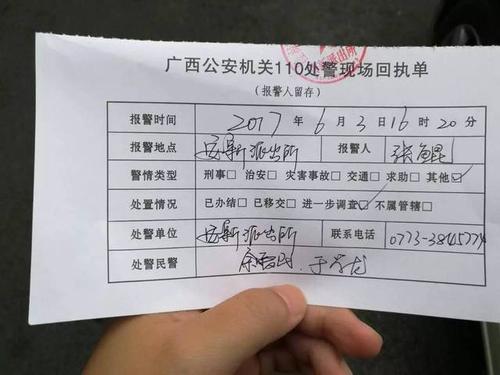 广西公安机关110处警现场回执单
（报警人留存）
报警时间 2017 年 6 月 3 日 16 时 20 分
报警地点 安新派出所 报警人 张鲲
警情类型 刑事□ 治安□ 灾害事故□ 交通□ 求助□ 其他☑
处置情况 已办结□ 已移交□ 进一步调查☑ 不属管辖□
处警单位 安新派出所 联系电话
处警民警